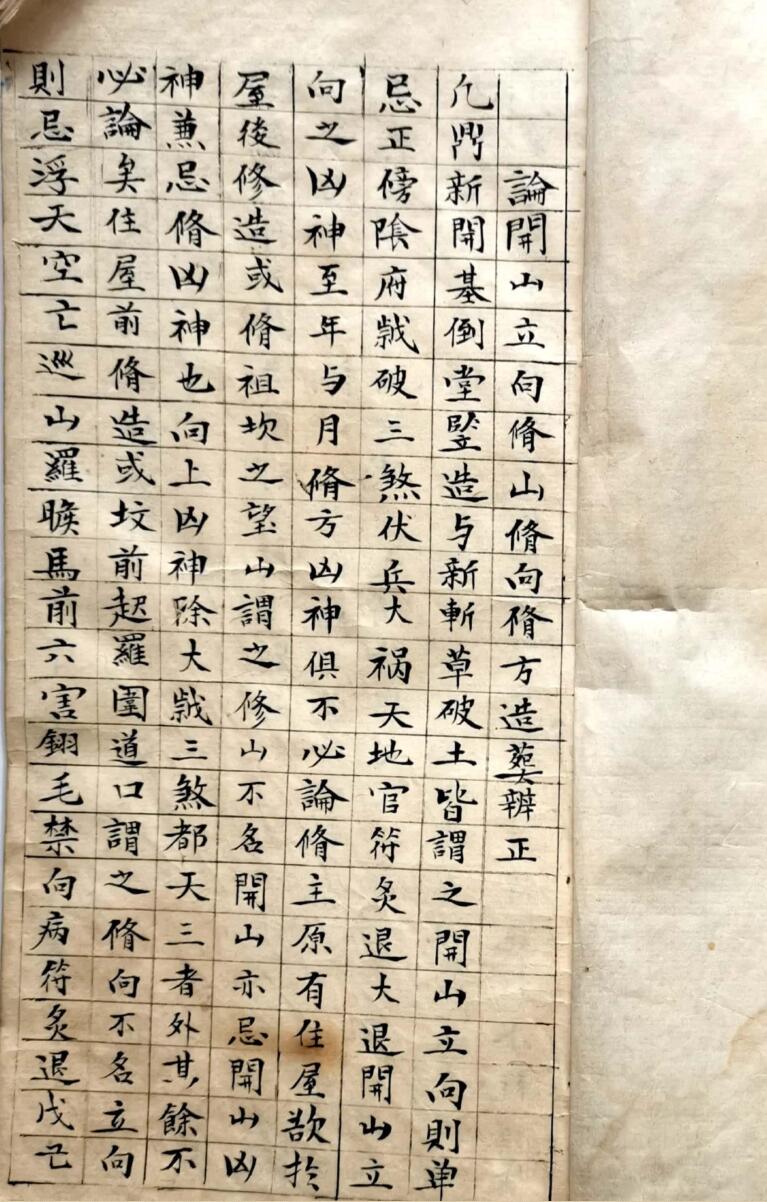 論開山立向脩山脩向脩方造葬辨正
凢鼎新開基倒堂竪造与新斬草破土皆謂之開山立向則单
忌正傍隂府歲破三煞伏兵大禍天地官符炙退大退開山立
向之凶神至年与月脩方凶神俱不必論脩主原有住屋欲扵
屋後修造或脩祖坟之望山謂之修山不名開山亦忌開山凶
神兼忌脩凶神也向上凶神除大歲三煞都天三者外其餘不
必論矣住屋前脩造或坟前起羅圍道口謂之脩向不名立向
則忌浮天空亡巡山羅睺馬前六害翎毛禁向病符炙退戊己